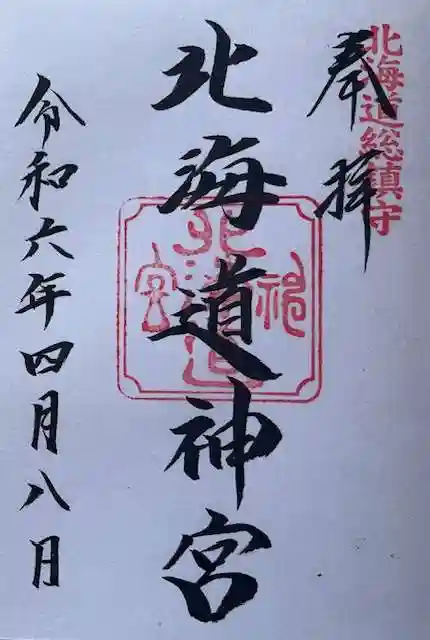 奉拝
北海道総鎮守
北海道神宮
令和六年四月八日